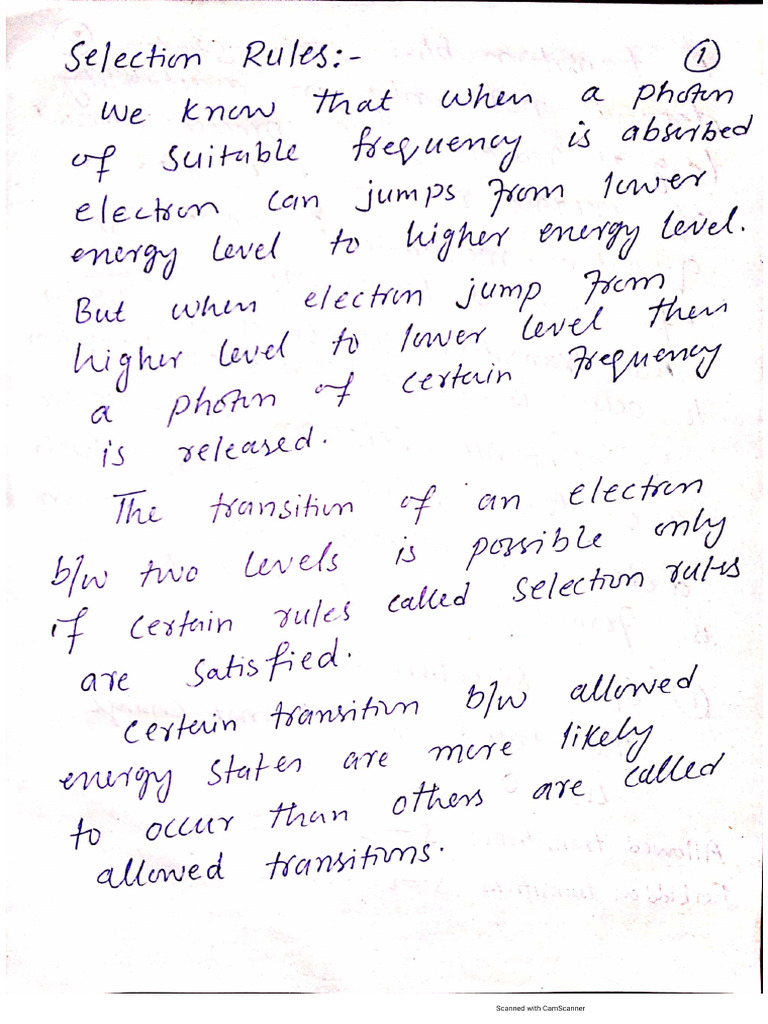 Selection Rules:- 1
We know that when a photon
of suitable frequency is absorbed
electron can jumps from lower
energy level to higher energy level.
But when electron jump from
higher level to lower level then
a photon of certain frequency
is released.
The transition of an electron
b/w two levels is possible only
if certain rules called selection rules
are satisfied.
Certain transition b/w allowed
energy states are more likely
to occur than others are called
allowed transitions.
Scanned with CamScanner